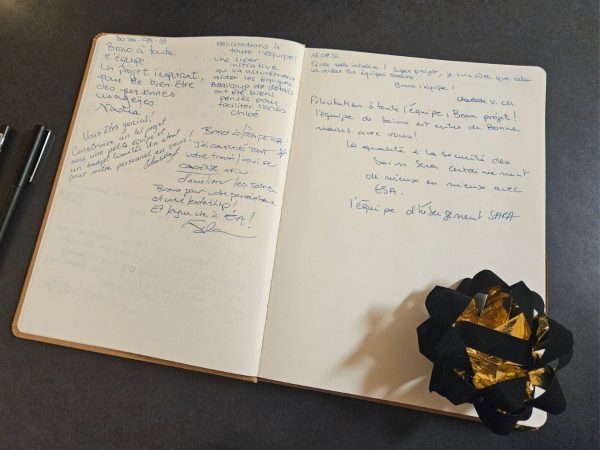 2020-08-18
Bravo à toute
l'équipe
Un projet inspirant,
pour le bien-être
des personnes
usagères
Nadia
Vous êtes génial!
Construire un tel projet
avec une petite équipe et
un budget limité. Un atout
pour notre personnel en soins!
Félicitations à
toute l'équipe!
une super
initiative
qui va assurément
aider les équipes
Beaucoup de détails
ont été biens
pensés pour
faciliter l'accès
Chloé
Bravo à l'équipe ESA,
J'ai constaté tout
votre travail
d'améliorer les soins
Bravo pour votre persévérance
et votre leadership!
Et longue vie à ESA!
18.08.20
Quelle belle initiative! Super projet, je suis sûre que cela
va aider les équipes terrain.
Bravo l'équipe!
Charlotte V. CSI
Félicitation à toute l'équipe, Beau projet!
l'équipe de Soins est entre de Bonne
mains avec vous!
La qualité à la sécurité des
Soin Sera certainement
de mieux en mieux avec
ESA.
l'équipe d'hébergement SAPA.